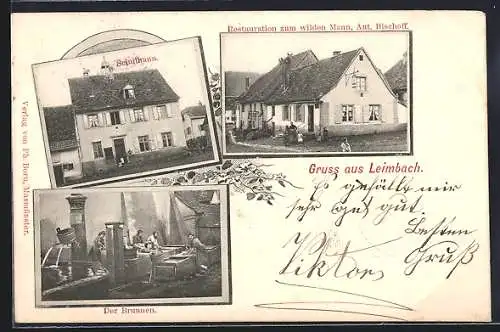 Restauration zum wilden Mann, Ant. Bischoff.
Schulhaus.
Verlag von Ph. Born, Masmünster.
Gruss aus Leimbach.
Es gefällt mir
sehr gut gut.
Besten
Gruß
Viktor
Der Brunnen.